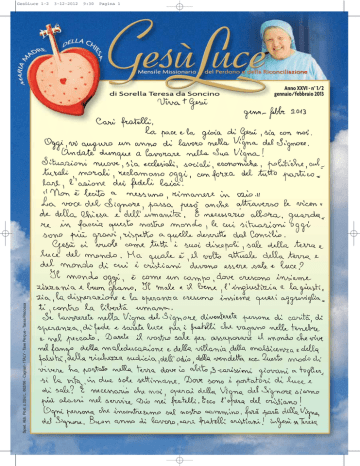 GesuLuce 1-2 3-12-2012 9:35 Pagina 1
MARIA MADRE DELLA CHIESA
Gesù Luce
Mensile Missionario del Perdono e della Riconciliazione
di Sorella Teresa da Soncino
Anno XXVI - n° 1/2
gennaio/febbraio 2013
Viva † Gesù
genn - febbr 2013
Cari fratelli,
la pace e la gioia di Gesù, sia con noi.
Oggi, vi auguro un anno di lavoro nella Vigna del Signore.
Andate dunque a lavorare nella Sua Vigna!
Situazioni nuove, sia ecclesiali, sociali, economiche, politiche, cul,
turali, morali, reclamano oggi, con forza del tutto partico
lare, l'azione dei fedeli laici.
"Non è lecito a nessuno, rimanere in ozio."
La voce del Signore, passa, però anche attraverso le vicen
de della Chiesa e dell'umanità. È necessario allora, guarda,
re in faccia questo nostro mondo, le cui situazioni oggi
sono più gravi, rispetto a quelle descritte dal Concilio.
Gesù ci vuole come tutti i suoi discepoli, sale della terra e
luce del mondo. Ma quale è il volto attuale della terra e
del mondo di cui i cristiani devono essere sale e luce?
Il mondo oggi, è come un campo, dove crescono insieme
zizzania e buon grano. Il male e il bene, l'ingiustizia e la giusti,
zia, la disperazione e la speranza crescono insieme quasi aggroviglia,
ti contro la libertà umana.
Se lavorerete nella Vigna del Signore diventerete persone di carità, di
speranza, di fede e sarete luce per i fratelli che vagano nelle tenebre
e nel peccato. Darete il vostro sale per assaporare il mondo che vive
nel fango della maleducazione e della villania, della maldicenza e della
falsità, della ricchezza sudicia, dell'odio, della vendetta ecc. Questo modo di
vivere ha portato nella terra dove io abito 3 carissimi giovani a toglier
si la vita, in due sole settimane. Dove sono i portatori di luce e
di sale? È necessario che noi, operai della Vigna del Signore siamo
più alacri nel servire. Dio nei fratelli. Ecco l'opera del cristiano!
Ogni persona che incontreremo sul nostro cammino, farà parte della Vigna
del Signore. Buon anno di lavoro, cari fratelli cristiani!